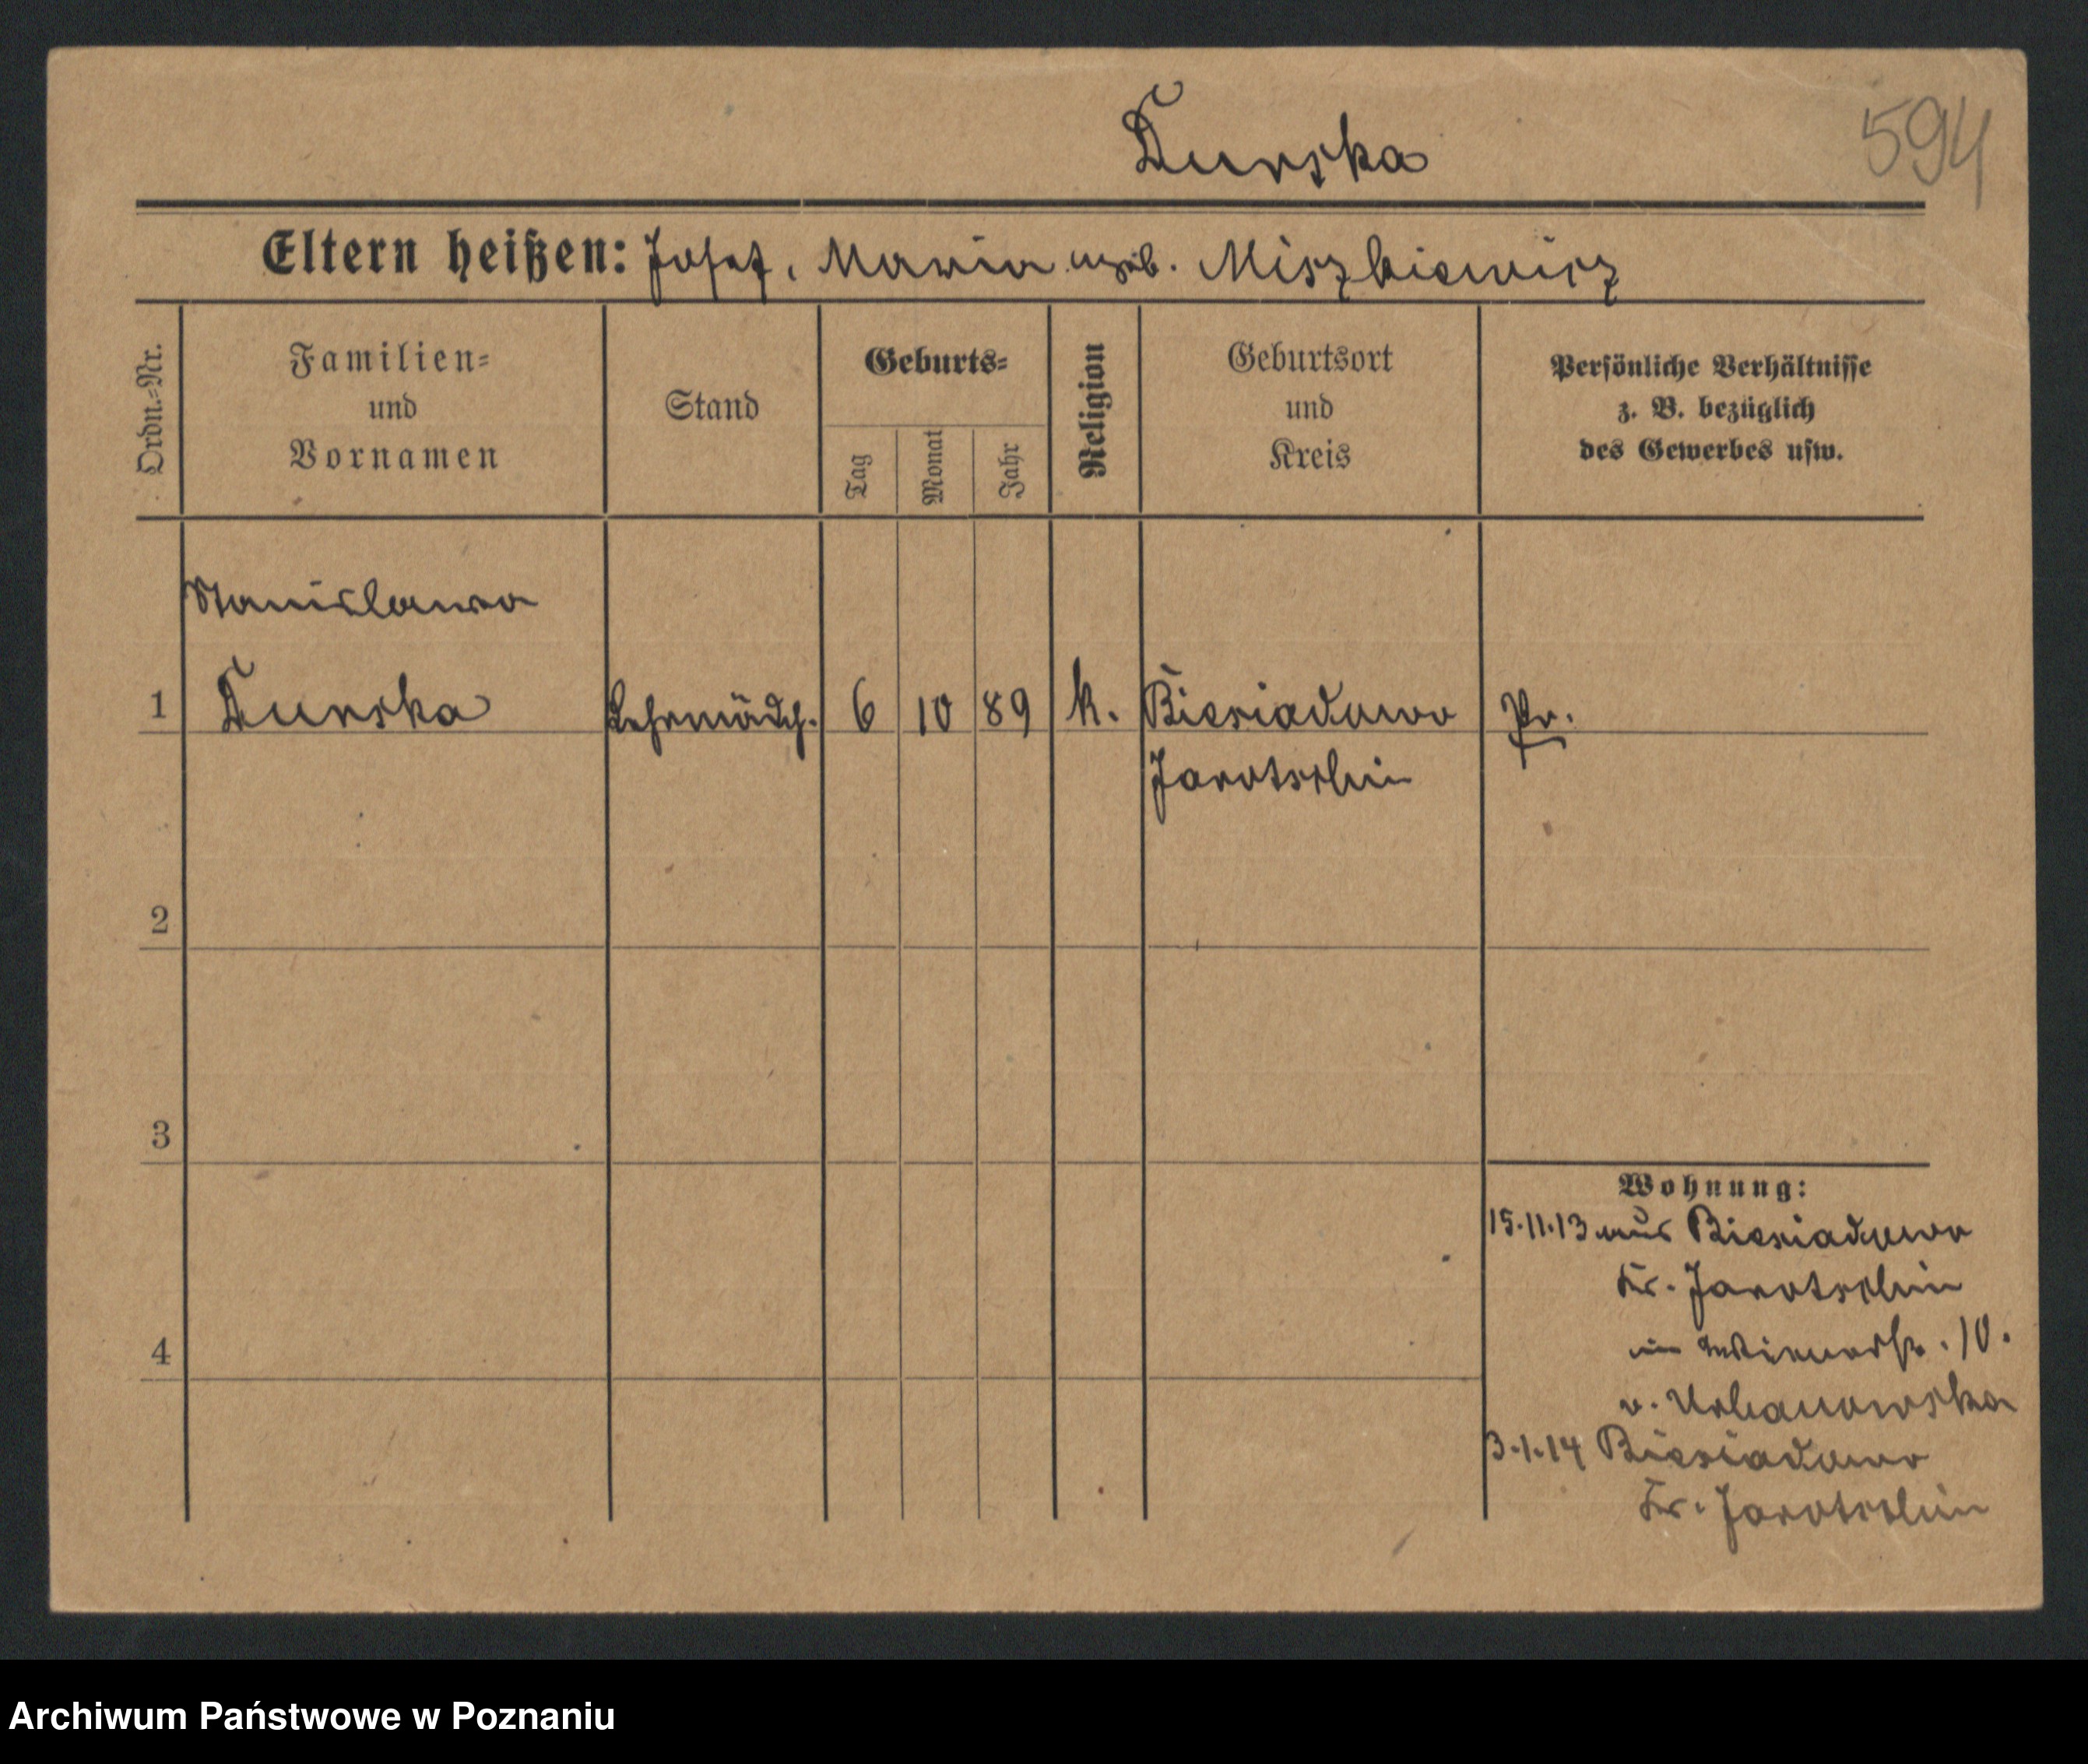 Turska
594
Eltern heißen: Josef, Maria geb. Miszkiewicz
Ordn.=Nr.
Familien=
und
Vornamen
Stand
Geburts=
Tag
Monat
Jahr
Religion
Geburtsort
und
Kreis
Persönliche Verhältnisse
z. B. bezüglich
des Gewerbes usw.
Stanislawa
1 Turska Lehrmädch. 6 10 89 k. Biesiadowo Pr.
Jarotschin
2
3
4
Wohnung:
15.11.13 aus Biesiadowo
Kr. Jarotschin
10.
v. Urbanowska
3.1.14 Biesiadowo
Kr. Jarotschin
Archiwum Państwowe w Poznaniu